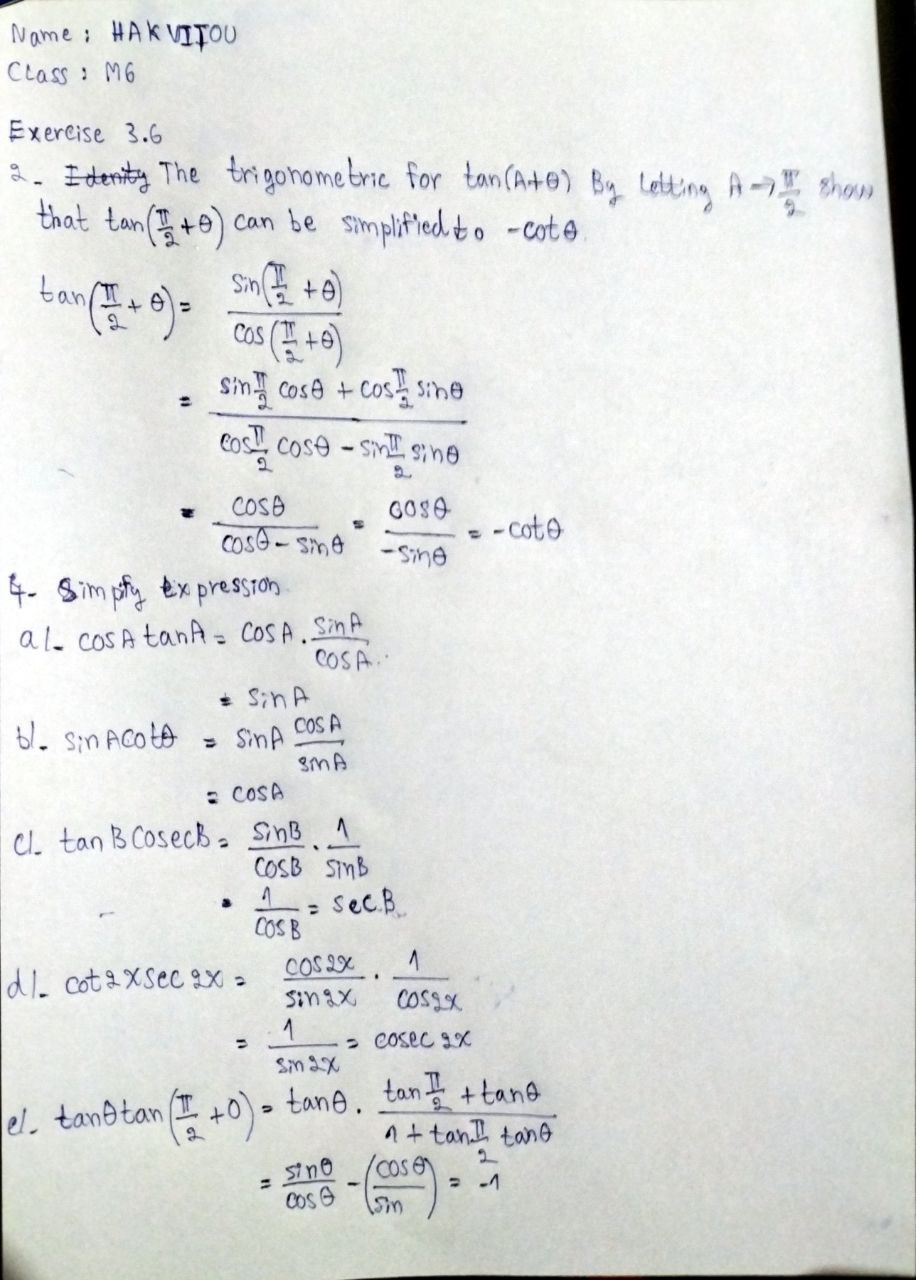 Name : HAKVITOU
Class : M6
Exercise 3.6
2- The trigonometric for tan(A+θ) By Letting A → π/2 show
that tan(π/2 + θ) can be simplified to -cotθ
tan(π/2 + θ) = sin(π/2 + θ) / cos(π/2 + θ)
= (sin π/2 cosθ + cos π/2 sinθ) / (cos π/2 cosθ - sin π/2 sinθ)
= cosθ / (cosθ - sinθ) = cosθ / -sinθ = -cotθ
4- Simpify Expression
a/- cosA tanA = cosA . sinA / cosA
= sinA
b/- sinAcotθ = sinA cosA / sinA
= cosA
c/- tanBCosecB = sinB / cosB . 1 / sinB
= 1 / cosB = secB
d/- cot2xsec2x = cos2x / sin2x . 1 / cos2x
= 1 / sin2x = cosec2x
e/- tanθtan(π/2 + 0) = tanθ . (tan π/2 + tanθ) / (1 + tan π/2 tanθ)
= sinθ / cosθ - (cosθ / sin) = -1